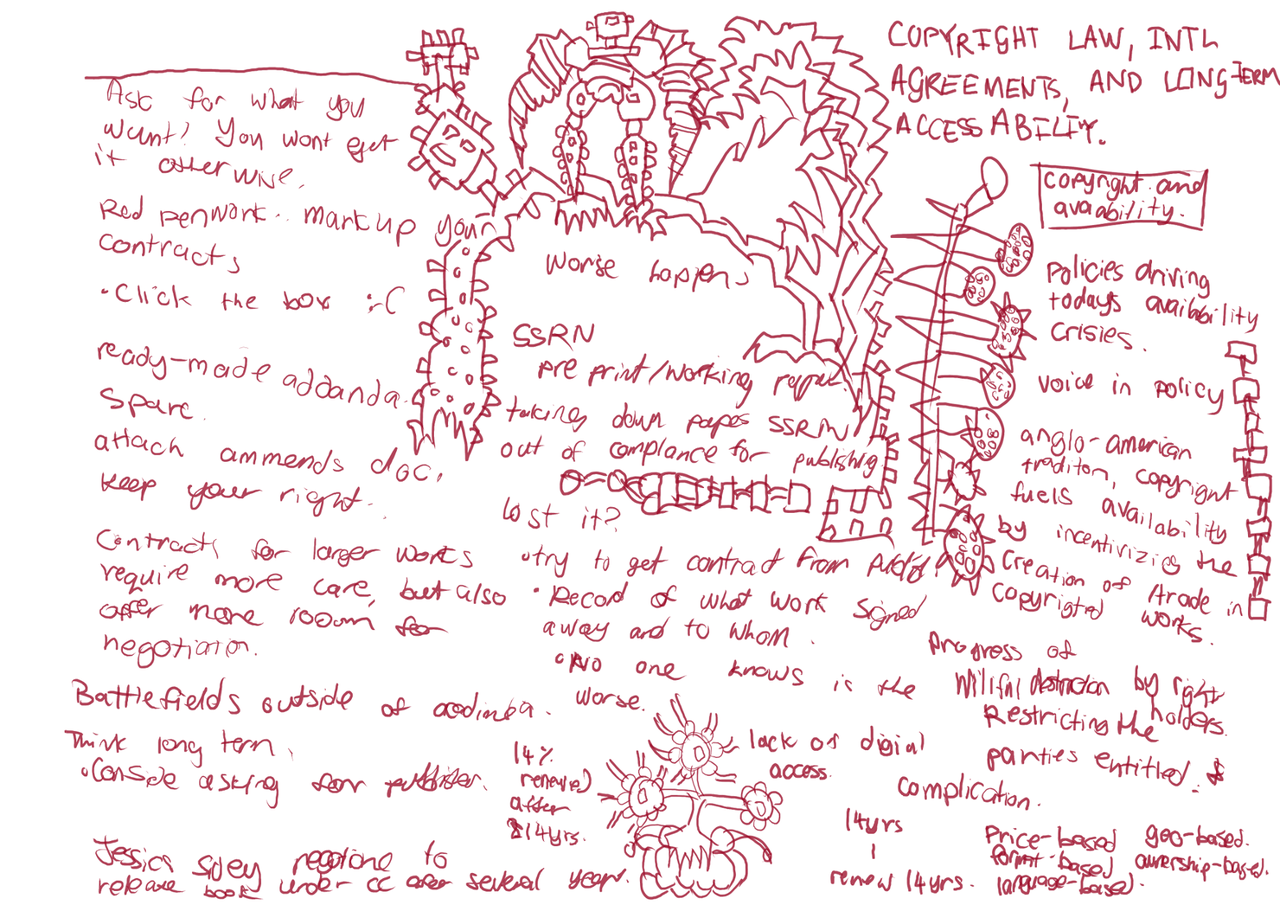 COPYRIGHT LAW, INTL
AGREEMENTS, AND LONG-TERM
ACCESSABILITY.
Ask for what you
want? You wont get
it otherwise.
Red penwork.. markup your
contracts
• Click the box :-(
ready-made addanda.
Sparc.
attach ammends doc.
keep your right.
Contracts for larger works
require more care, but also
offer more room for
negotiation.
Battlefields outside of acadimea.
Think long term.
• Conside asking for publisher.
Jessica negotione to
release book under cc after several years.
Worse happens
SSRN
pre print/working
taking down papes SSRN
out of compliance for publishing
Lost it?
• try to get contract from
• Record of what work signed
away and to whom.
• No one knows is the
worse.
14%
renewed
after
14yrs.
lack of digial
access.
14yrs
renew 14yrs.
copyright and
avaability.
policies driving
todays availability
crisies.
voice in policy
anglo-american
traditon, copyright
fuels availability
by incentivizing the
Creation of Atrade in
copyrigted works.
Progress of
Willful by right
holders.
Restricting the
parties entitled.
complication.
Price-based geo-based.
formt-based ownership-based.
language-based.